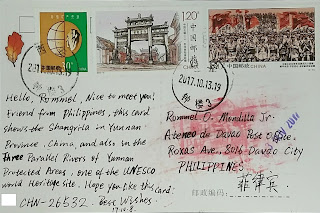 1.20
中国邮政
CHINA
中国邮政 CHINA
2017.10.13.19
2017.10.13.19
Hello, Rommel, Nice to meet you!
Friend from Philippines, this card
shows the Shangrila in Yunnan
Province, China, and also in the
Three Parallel Rivers of Yunnan
Protected Areas, one of the UNESCO
world Heritage site. Hope you like this card.
CHN-26532. Best Wishes.
Rommel O. Mondilla Jr.
Ateneo de Davao Post Office,
Roxas Ave., 8016 Davao City
PHILIPPINES
菲律宾
邮政编码: